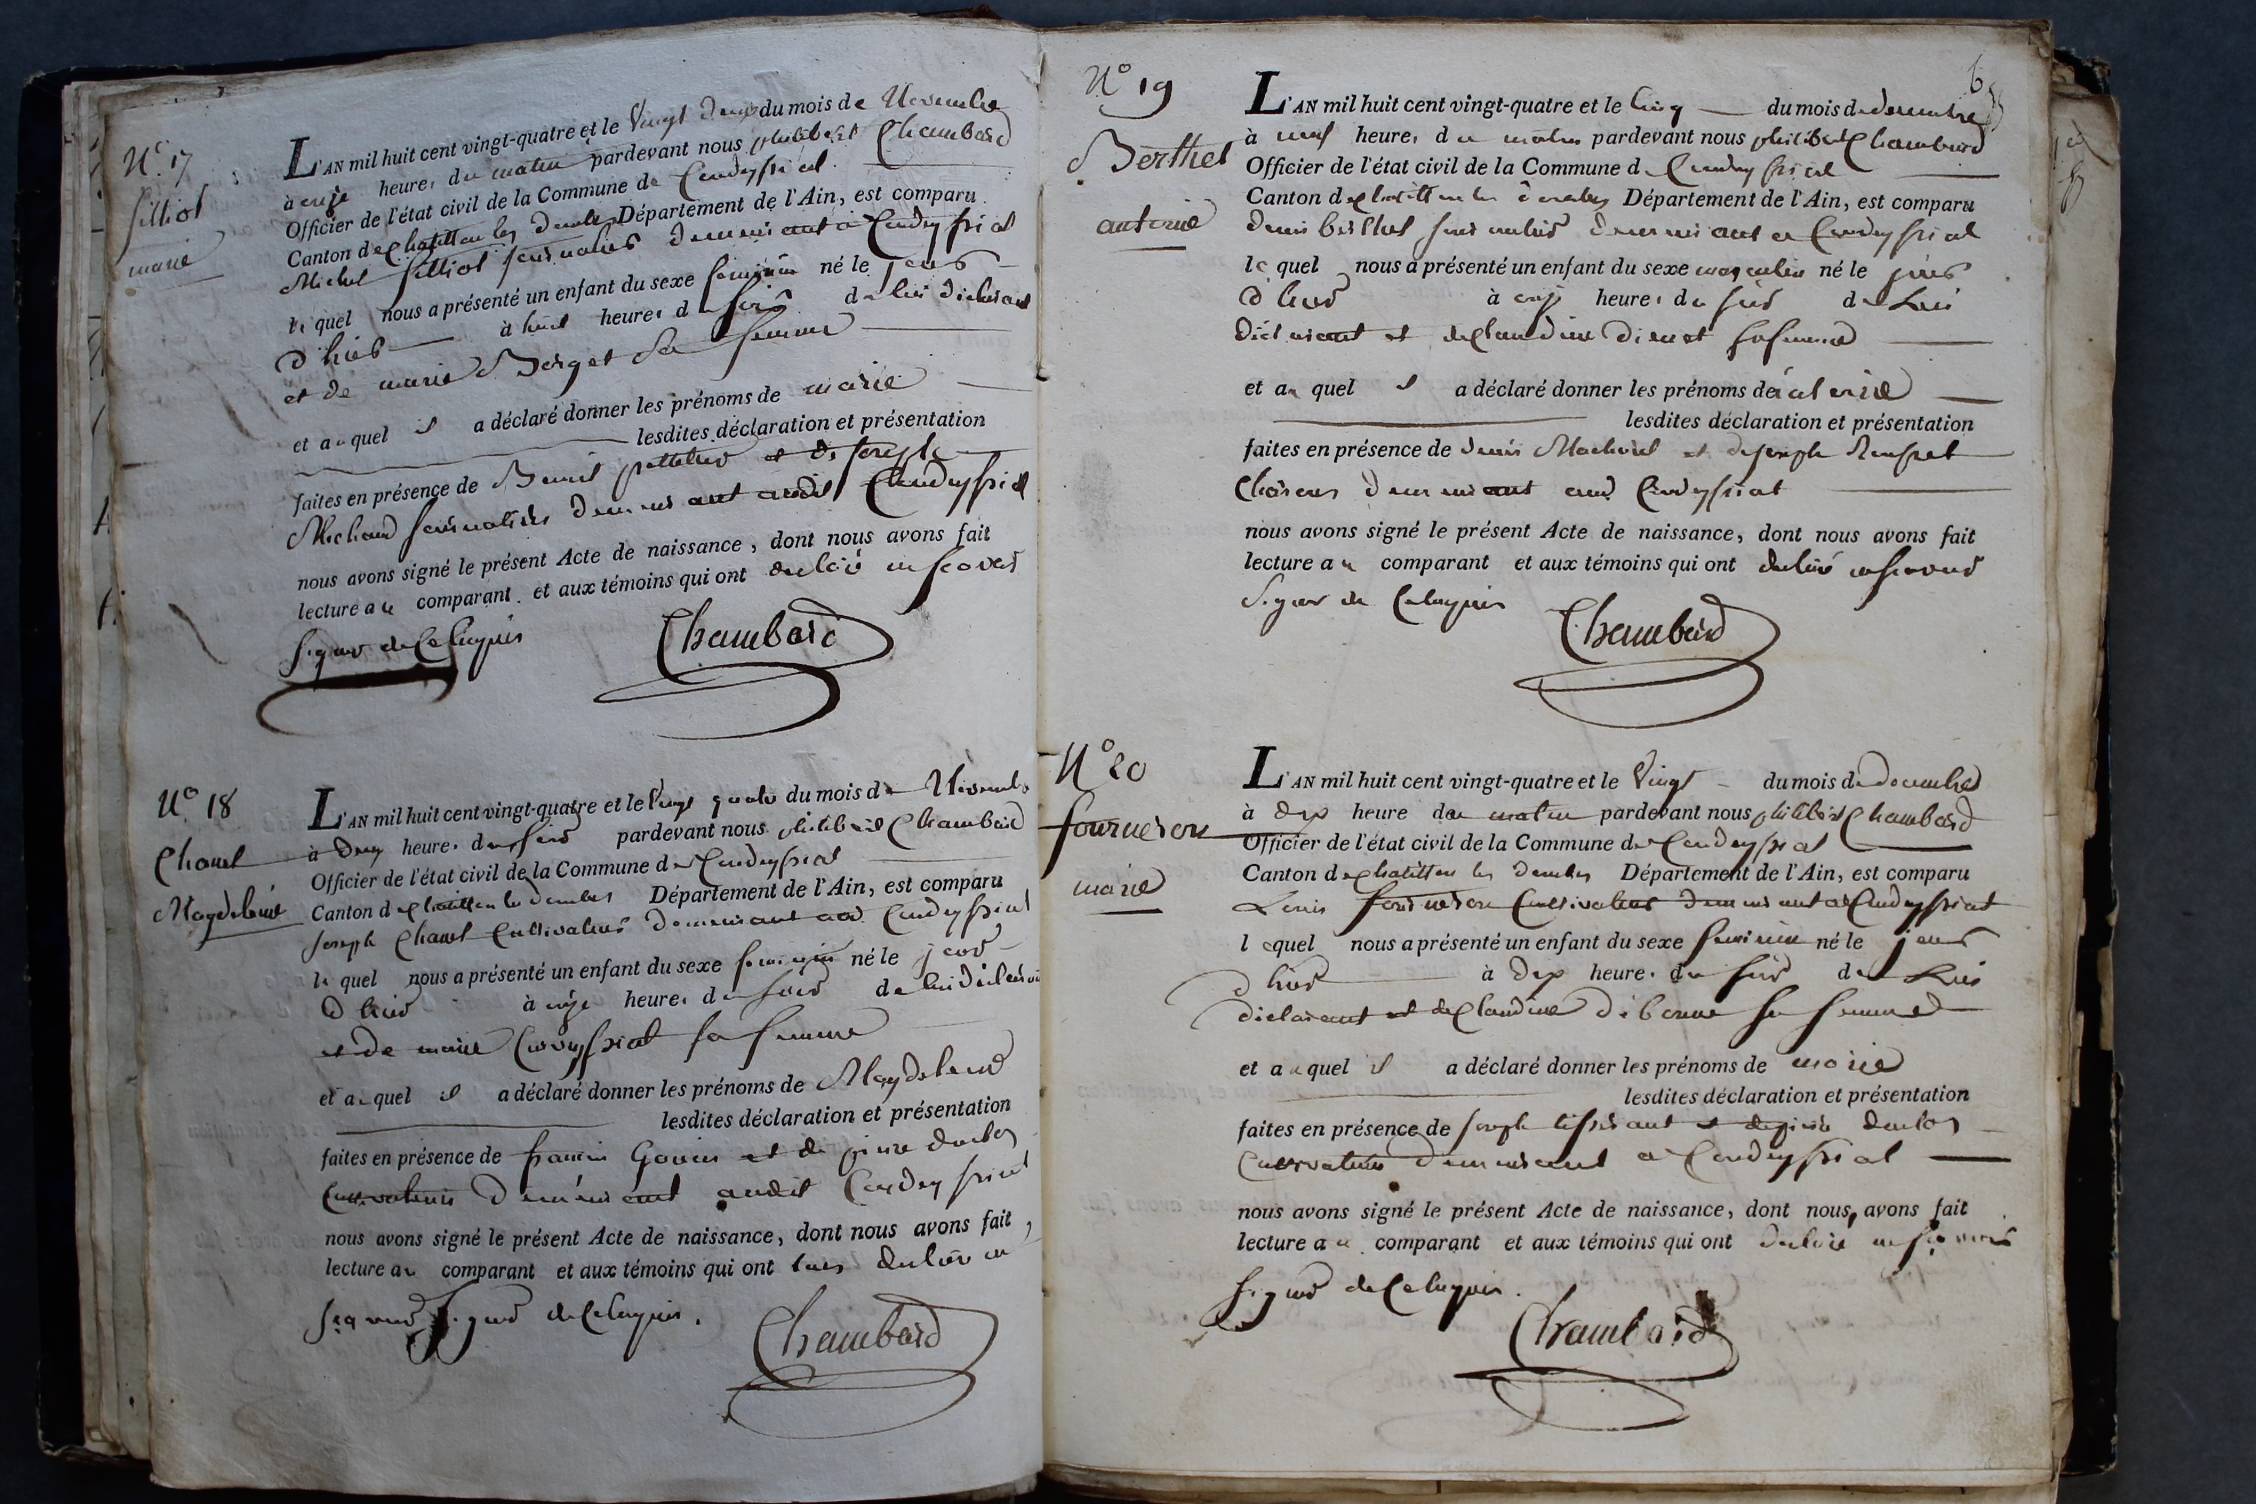 N.° 17
filliol
marie
L'AN mil huit cent vingt-quatre et le Vingt deux du mois de Novembre
à onze heures du matin pardevant nous philibert Chambard
Officier de l'état civil de la Commune de Condeyssiat
Canton de chatillon les dombes Département de l'Ain, est comparu
Michel filliol demeurant a Condeyssiat
le quel nous a présenté un enfant du sexe feminin né le jour
d'hier à huit heures du soir de lui declarant
et de marie Berget sa femme
et auquel il a déclaré donner les prénoms de marie
lesdites déclaration et présentation
faites en présence de Benoit et de joseph
Michaud demeurant audit Condeyssiat
nous avons signé le présent Acte de naissance, dont nous avons fait
lecture au comparant et aux témoins qui ont declaré ne scavoir
signer de ce enquis
Chambard
N.° 18
Chanel
Magdeleine
L'AN mil huit cent vingt-quatre et le Vingt quatre du mois de Novembre
à deux heures du soir pardevant nous philibert Chambard
Officier de l'état civil de la Commune de Condeyssiat
Canton de chatillon les dombes Département de l'Ain, est comparu
joseph Chanel Cultivateur demeurant a Condeyssiat
le quel nous a présenté un enfant du sexe feminin né le jour
d'hier à onze heures du soir de lui déclarant
et de marie sa femme
et auquel il a déclaré donner les prénoms de Magdeleine
lesdites déclaration et présentation
faites en présence de francois et de pierre
Cultivateurs demeurant audit Condeyssiat
nous avons signé le présent Acte de naissance, dont nous avons fait
lecture au comparant et aux témoins qui ont tous declaré ne
scavoir signer de ce enquis.
Chambard
6
N° 19
Berthet
antoine
L'AN mil huit cent vingt-quatre et le Cinq du mois de decembre
à neuf heures du matin pardevant nous philibert Chambard
Officier de l'état civil de la Commune de Condeyssiat
Canton de chatillon les dombes Département de l'Ain, est comparu
denis berthet demeurant a Condeyssiat
le quel nous a présenté un enfant du sexe masculin né le jour
d'hier à onze heures du soir de Lui
déclarant et de Claudine sa femme
et auquel il a déclaré donner les prénoms de antoine
lesdites déclaration et présentation
faites en présence de denis et de joseph
demeurant aud Condeyssiat
nous avons signé le présent Acte de naissance, dont nous avons fait
lecture au comparant et aux témoins qui ont declaré ne scavoir
signer de ce enquis
Chambard
N° 20
fourneron
marie
L'AN mil huit cent vingt-quatre et le Vingt du mois de decembre
à dix heure du matin pardevant nous philibert Chambard
Officier de l'état civil de la Commune de Condeyssiat
Canton de chatillon les dombes Département de l'Ain, est comparu
Louis fourneron Cultivateur demeurant a Condeyssiat
lequel nous a présenté un enfant du sexe feminin né le jour
d'hier à dix heures du soir de Lui
declarant et de Claudine sa femme
et auquel il a déclaré donner les prénoms de marie
lesdites déclaration et présentation
faites en présence de joseph tisserant et de pierre
Cultivateurs demeurant a Condeyssiat
nous avons signé le présent Acte de naissance, dont nous avons fait
lecture au comparant et aux témoins qui ont declaré ne scavoir
signer de ce enquis.
Chambard